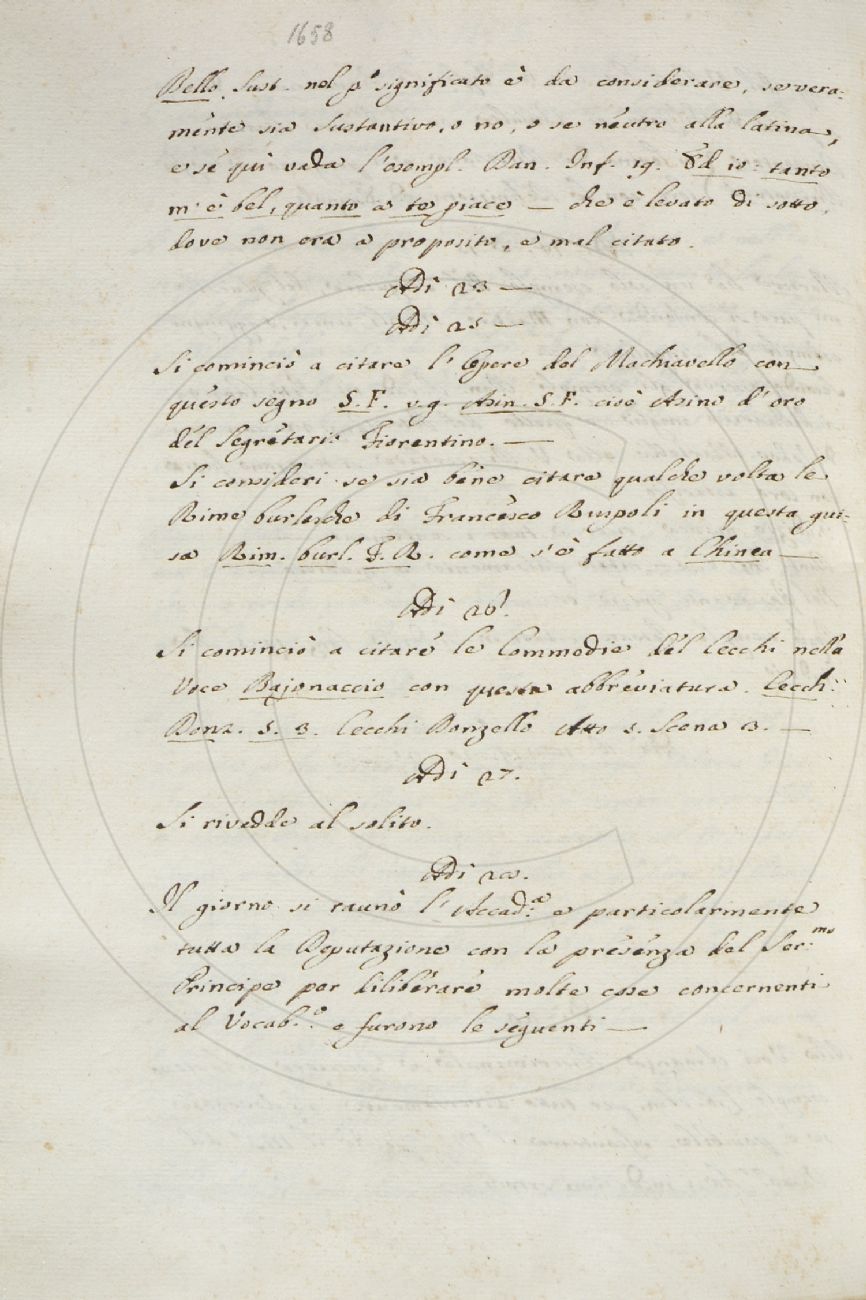 1658
Bello. Sust. nel p.º significato è da considerare, se vera-
mente sia Sustantivo, o no, o se neutro alla latina,
e se qui vada l'esempl. Dan. Inf. 19. Ed io: tanto
m'è bel, quanto a te piace — che è levato di sotto,
dove non era a proposito, e mal citato.
Adì 23 —
Adì 25 —
Si cominciò a citare l'Opere del Machiavello con
questo segno S. F. v.g. Asin. S. F. cioè Asino d'oro
del Segretario Fiorentino. —
Si consideri se sia bene citare qualche volta le
Rime burlesche di Francesco Ruspoli in questa gui-
sa Rim. burl. F. R. come s'è fatto a Chinea —
Adì 26.
Si cominciò a citare le Commodie del Cecchi nella
Voce Bajonaccio con questa abbreviatura. Cecch:
Donz. 5. 3. Cecchi Donzello Atto 5. Scena 3. —
Adì 27.
Si rivedde al solito.
Adì 28.
Il giorno si raunò l'Accad.ª e particolarmente
tutta la Deputazione con la presenza del Ser:mo
Principe per diliberare molte cose concernenti
al Vocab.º e furono le seguenti —